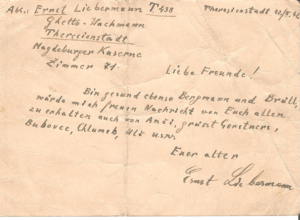 Abs.: Ernst Liebermann T 438
Ghetto-Wachmann
Theresienstadt
Magdeburger Kaserne
Zimmer 71
Theresienstadt
Liebe Freunde!
Bin gesund ebenso Bergmann und Brüll,
würde mich freuen Nachricht von Euch allen
zu erhalten auch von grüsst Gerstners,
Bubovec, Chlumek, usw.
Euer alter
Ernst Liebermann